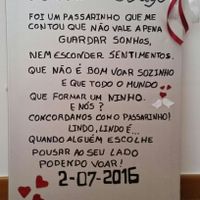 FOI UM PASSARINHO QUE ME
CONTOU QUE NÃO VALE A PENA
GUARDAR SONHOS,
NEM ESCONDER SENTIMENTOS.
QUE NÃO É BOM VOAR SOZINHO
E QUE TODO O MUNDO
QUE FORMAR UM NINHO.
E NÓS?
CONCORDAMOS COM O PASSARINHO!
LINDO, LINDO É...
QUANDO ALGUÉM ESCOLHE
POUSAR AO SEU LADO
PODENDO VOAR!
2-07-2016